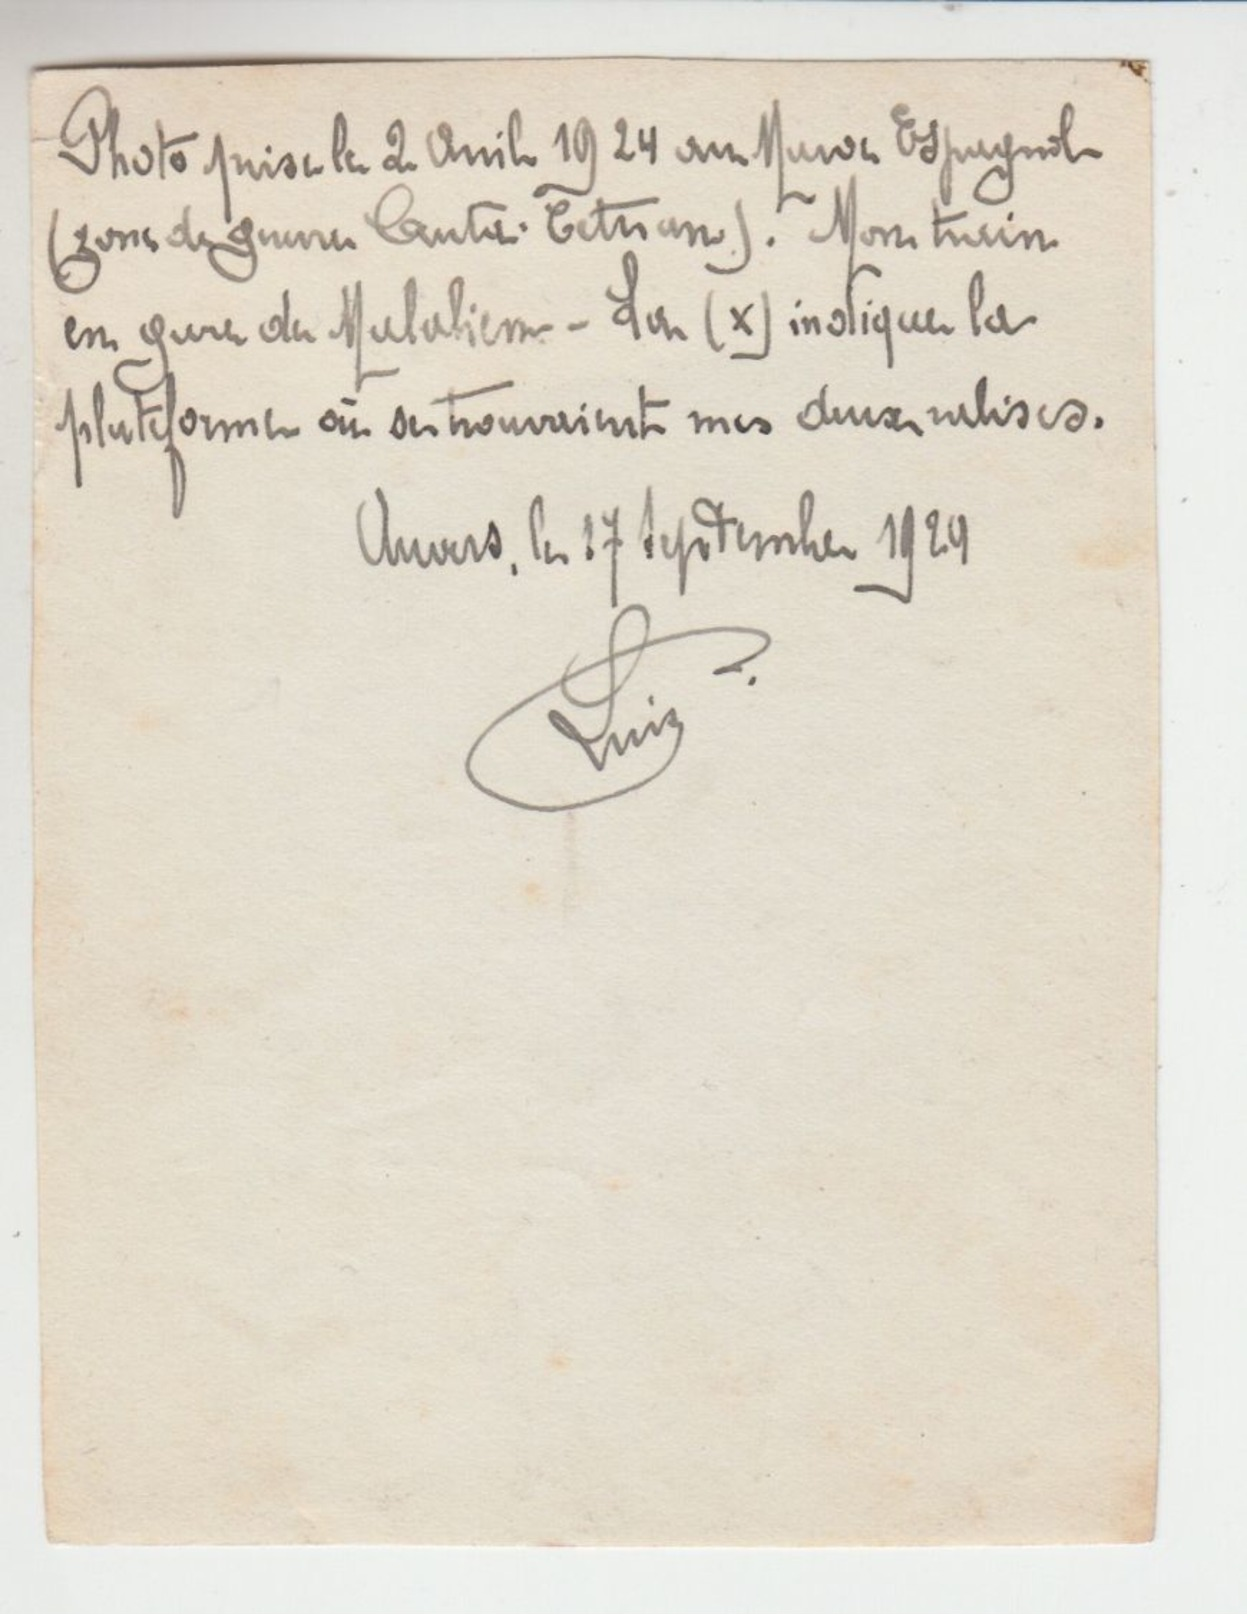 Photo prise le 2 Avril 1924 au Maroc Espagnol
(zone de guerre Ceuta-Tetuan). Mon train
en gare de Malalien - La (x) indique la
plateforme où se trouvaient mes deux valises.
Anvers, le 17 Septembre 1929
Luis